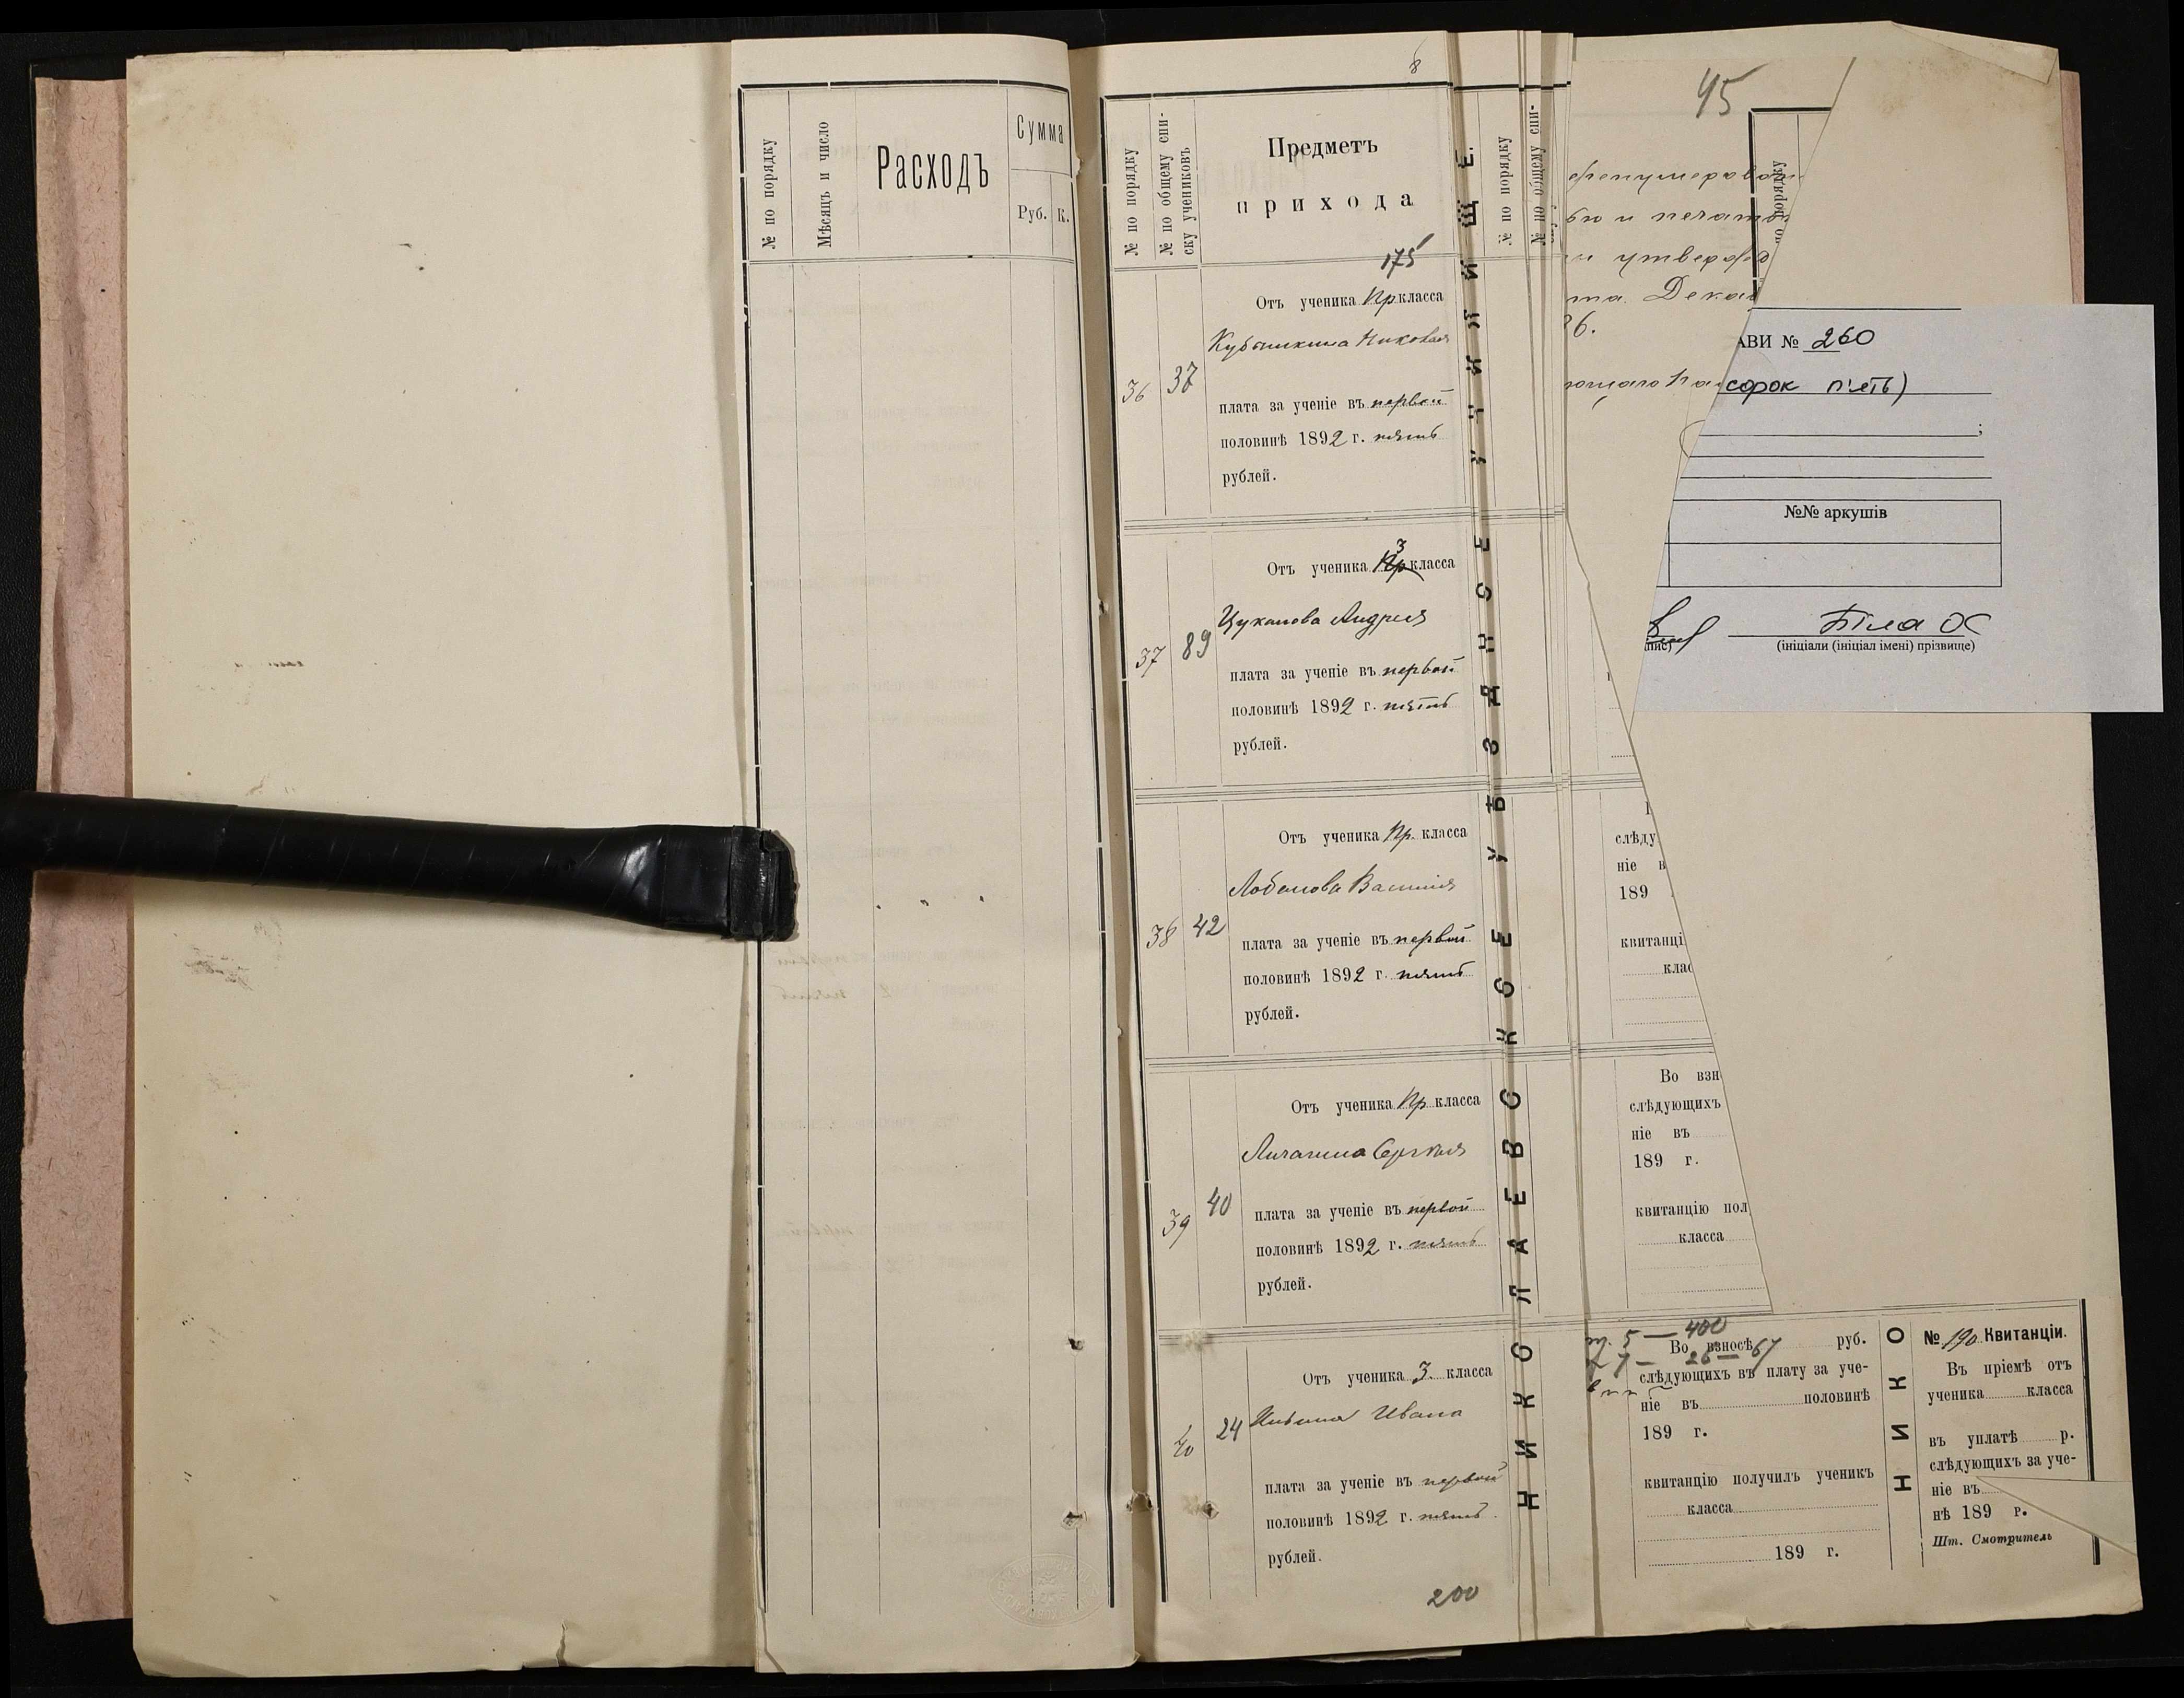 № по порядку
Мѣсяцъ и число
Расходъ
Сумма
Руб.
К.
8
№ по порядку
№ по общему спи-
ску учениковъ
Предметъ
прихода
175
36
37
Отъ ученика Пр. класса
Николая
плата за ученіе въ первой
половинѣ 1892 г. пять
рублей.
37
89
Отъ ученика 3 класса
Цуканова Андрея
плата за ученіе въ первой
половинѣ 1892 г. пять
рублей.
38
42
Отъ ученика Пр. класса
Лобанова Василія
плата за ученіе въ первой
половинѣ 1892 г. пять
рублей.
39
40
Отъ ученика Пр. класса
Сергѣя
плата за ученіе въ первой
половинѣ 1892 г. пять
рублей.
40
24
Отъ ученика 3 класса
Ивана
плата за ученіе въ первой
половинѣ 1892 г. пять
рублей.
200
НИКОЛАЕВСКОЕ УѢЗДНОЕ УЧИЛИЩЕ.
№ по порядку
№ по общему спи-
45
по порядку
и утверд
та. Дека
АВИ № 260
сорок п'ять)
;
№№ аркушів
Біла О
(ініціали (ініціал імені) прізвище)
слѣду
ніе в
189
квитанці
клас
Во взн
слѣдующихъ
ніе въ
189 г.
квитанцію пол
класса
5 — 400
7 — 26 — 67
Во взносѣ руб.
слѣдующихъ въ плату за уче-
ніе въ половинѣ
189 г.
квитанцію получилъ ученикъ
класса
189 г.
НИКО
№ 190 Квитанціи.
Въ пріемѣ отъ
ученика класса
въ уплатѣ р.
слѣдующихъ за уче-
ніе въ
нѣ 189 г.
Шт. Смотритель